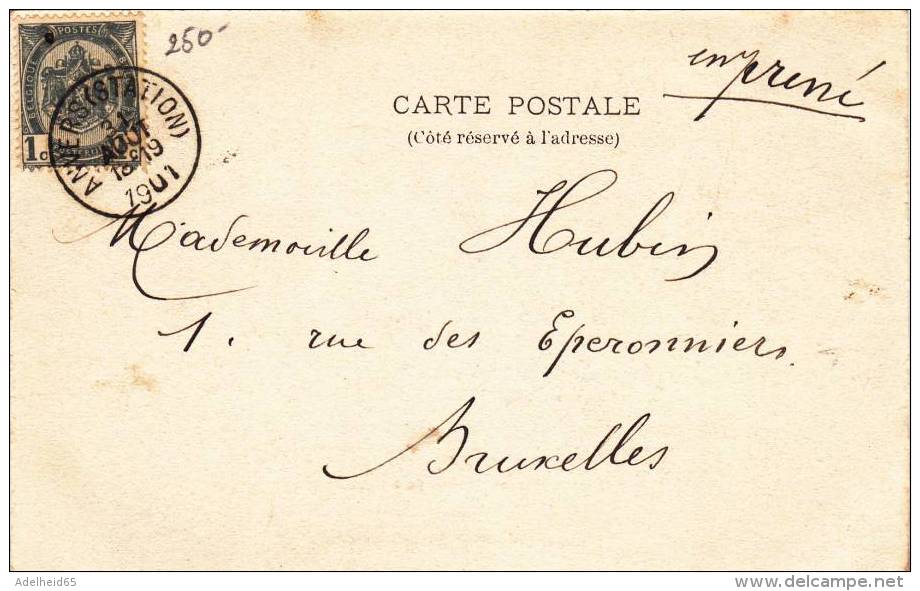 POSTES
BELGIQUE
1c
250-
ANVERS (STATION)
AOUT
18-19
1901
CARTE POSTALE
(Côté réservé à l'adresse)
Mademoiille Hubin
1. rue des Eperonniers
Bruxelles
Adelheid65
delcampe.net